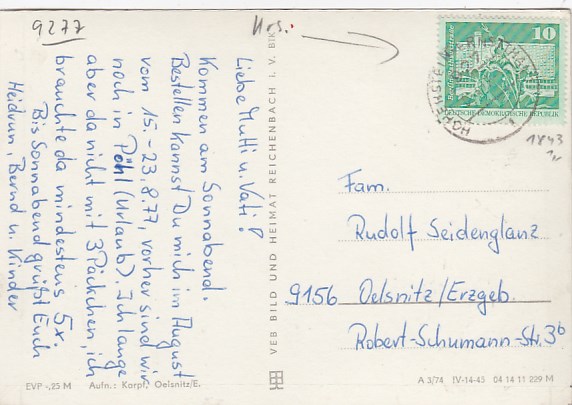 9277
Hrs.
10
DEUTSCHE DEMOKRATISCHE REPUBLIK
1843
Liebe Mutti u. Vati!
Kommen am Sonnabend.
Bestellen kannst Du mich im August
vom 15.-23.8.77, vorher sind wir
noch in Pöhl (Urlaub). Ich lange
aber da nicht mit 3 Päckchen, ich
brauchte da mindestens 5x.
Bis Sonnabend grüßt Euch
Heidrun, Bernd u. Kinder
VEB BILD UND HEIMAT REICHENBACH I. V. BIK
Fam.
Rudolf Seidenglanz
9156 Oelsnitz/Erzgeb.
Robert-Schumann-Str. 3b
EVP -,25 M Aufn.: Karpf, Oelsnitz/E.
A 3/74 IV-14-45 04 14 11 229 M